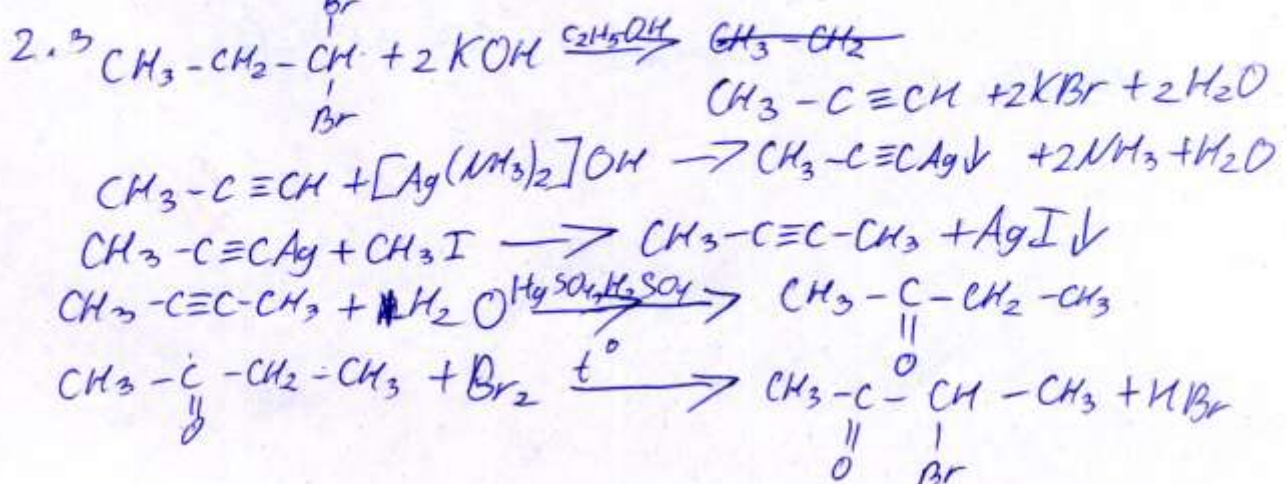 Br
2.3 CH₃-CH₂-CH + 2KOH C₂H₅OH→ CH₃-CH₂
Br
CH₃-C≡CH + 2KBr + 2H₂O
CH₃-C≡CH + [Ag(NH₃)₂]OH → CH₃-C≡CAg↓ + 2NH₃ + H₂O
CH₃-C≡CAg + CH₃I → CH₃-C≡C-CH₃ + AgI↓
CH₃-C≡C-CH₃ + H₂O HgSO₄,H₂SO₄→ CH₃-C-CH₂-CH₃
O
CH₃-C-CH₂-CH₃ + Br₂ t°→ CH₃-C-CH-CH₃ + HBr
O O Br